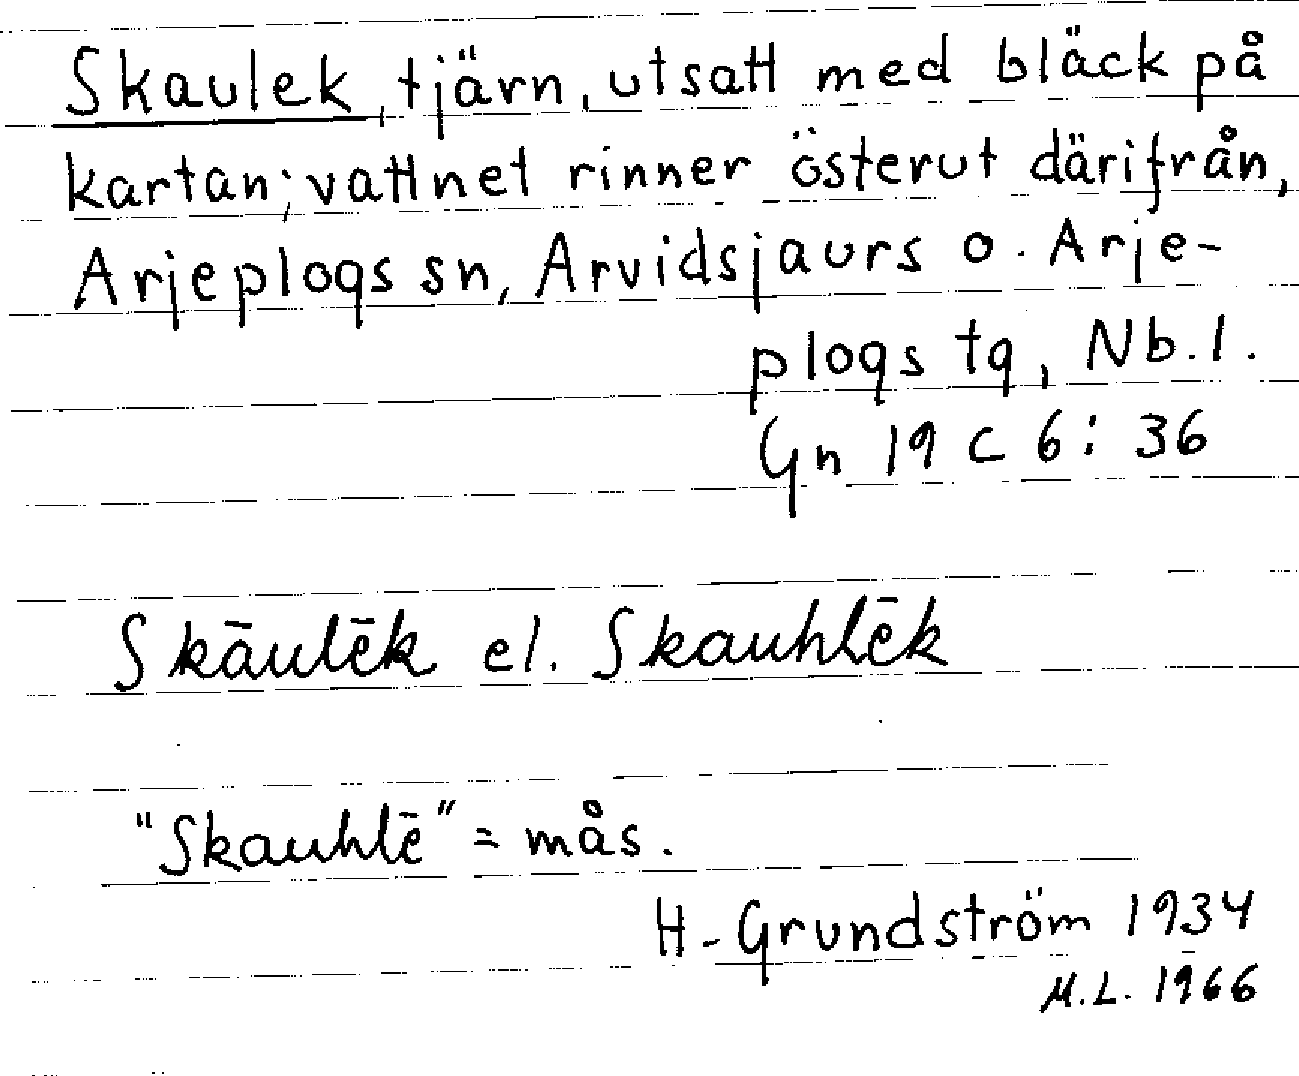 Skaulek, tjärn, utsatt med bläck på
kartan; vattnet rinner österut därifrån,
Arjeplogs sn, Arvidsjaurs o. Arje-
plogs tg, Nb. l.
Gn 19 C 6: 36
Skāulēk el. Skauhlēk
"Skauhlē" = mås.
H. Grundström 1934
M.L. 1966